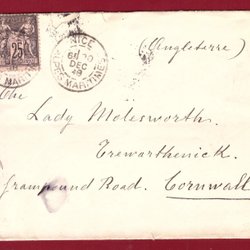 25
NICE
6E 10
DEC
49
ALPES-MARITIMES
(Angleterre)
The
Lady Molesworth.
Trewarthenick.
Grampound Road. Cornwall